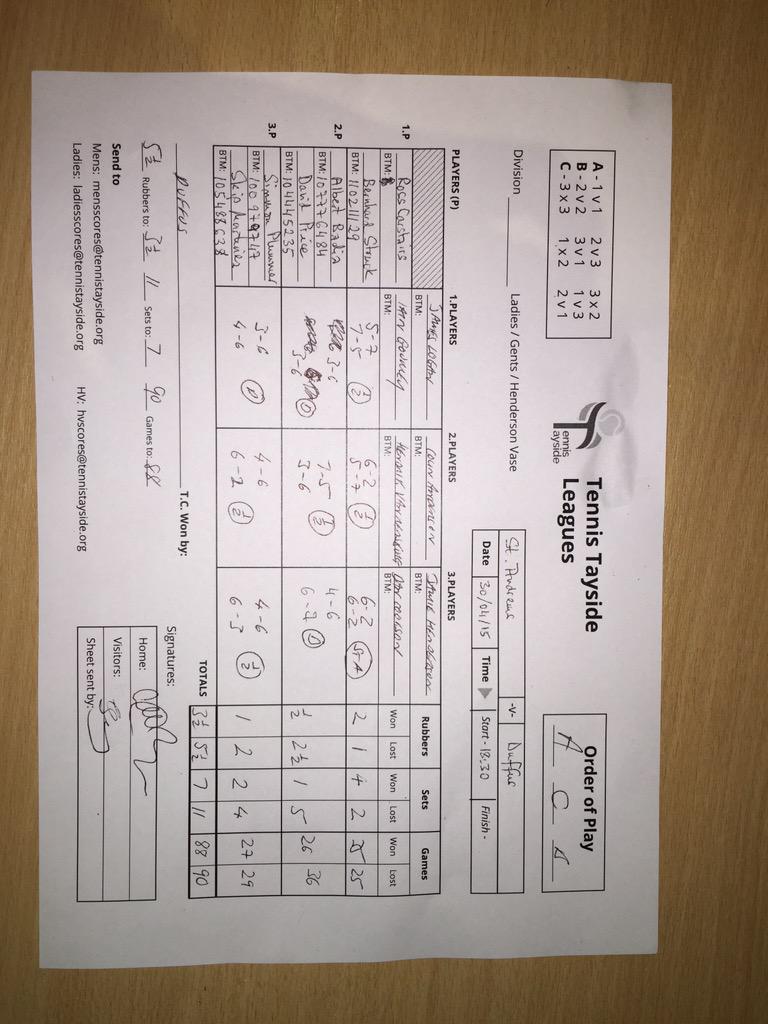 A - 1 v 1 2 v 3 3 x 2
B - 2 v 2 3 v 1 1 v 3
C - 3 x 3 1 x 2 2 v 1
Tennis Tayside
Leagues
Tennis
Tayside
Order of Play
A C
Division Ladies / Gents / Henderson Vase
St. Andrews -v- Duffus
Date 30/04/15 Time Start - 18.30 Finish -
PLAYERS (P) 1.PLAYERS 2.PLAYERS 3.PLAYERS Rubbers Sets Games
BTM: BTM: BTM: Won Lost Won Lost Won Lost
1.P Ross Carstairs
BTM:
Bernhard Struck
BTM: 110211129
5-7 6-2 6-2
7-5 ½ 5-7 ½ 6-2 StA
2 1 4 2 25
2.P Albert Badia
BTM: 107776484
David Price
BTM: 104445235
3-6 7-5 4-6
3-6 D 3-6 ½ 6-7 D
½ 2½ 1 5 26 36
3.P Simmon Plummer
BTM: 100979747
Skip
BTM: 105488638
3-6 4-6 4-6
4-6 D 6-2 ½ 6-3 ½
1 2 2 4 27 29
TOTALS 3½ 5½ 7 11 88 90
DUFFUS T.C. Won by:
5½ Rubbers to: 3½ 11 Sets to: 7 90 Games to: 88
Signatures:
Home:
Visitors:
Sheet sent by:
Send to
Mens: mensscores@tennistayside.org
Ladies: ladiesscores@tennistayside.org HV: hvscores@tennistayside.org